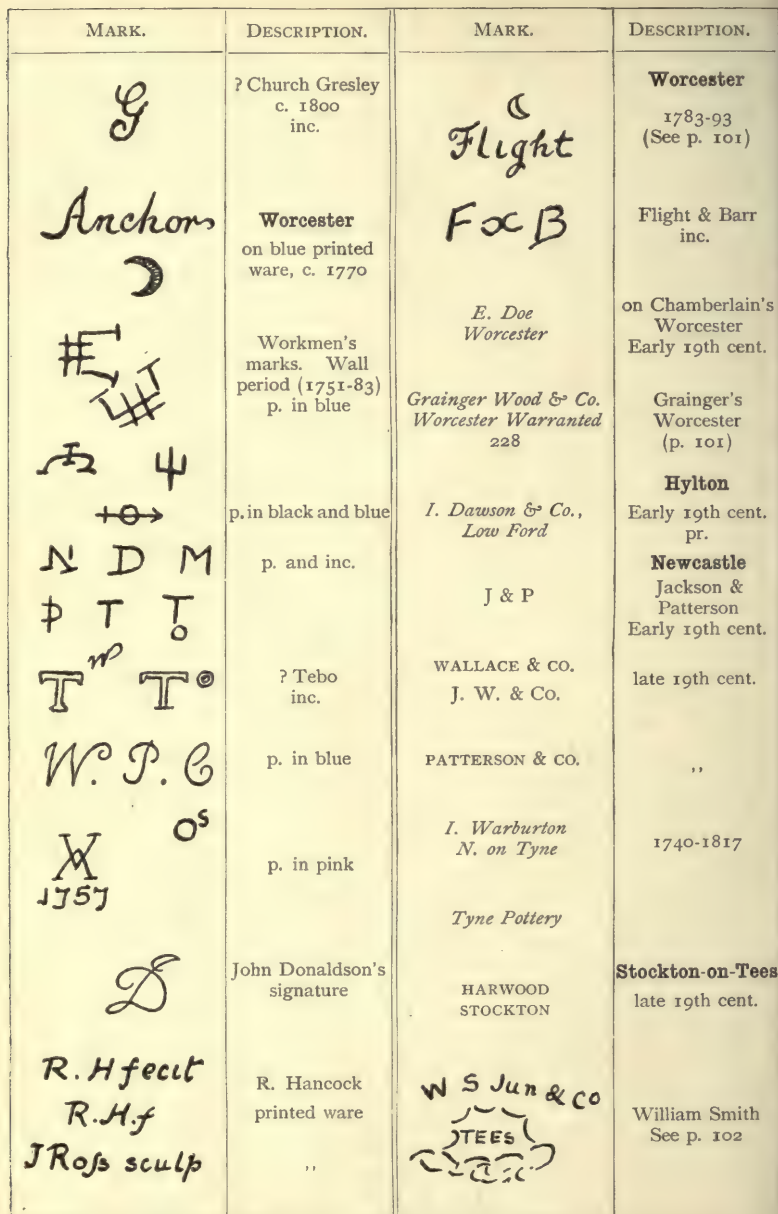 MARK.
DESCRIPTION.
G
? Church Gresley
c. 1800
inc.
Anchors
Worcester
on blue printed
ware, c. 1770
Workmen's
marks. Wall
period (1751-83)
p. in blue
p. in black and blue
N D M
p. and inc.
T T
o
T T
? Tebo
inc.
W. P. C
p. in blue
Os
1757
p. in pink
D
John Donaldson's
signature
R. H fecit
R. Hancock
R.H.f
printed ware
J Roſs sculp
,,
MARK.
DESCRIPTION.
Worcester
Flight
1783-93
(See p. 101)
F & B
Flight & Barr
inc.
E. Doe
Worcester
on Chamberlain's
Worcester
Early 19th cent.
Grainger Wood & Co.
Worcester Warranted
228
Grainger's
Worcester
(p. 101)
Hylton
I. Dawson & Co.,
Low Ford
Early 19th cent.
pr.
Newcastle
J & P
Jackson &
Patterson
Early 19th cent.
WALLACE & CO.
J. W. & Co.
late 19th cent.
PATTERSON & CO.
,,
I. Warburton
N. on Tyne
1740-1817
Tyne Pottery
Stockton-on-Tees
HARWOOD
STOCKTON
late 19th cent.
W S Jun & Co
TEES
William Smith
See p. 102